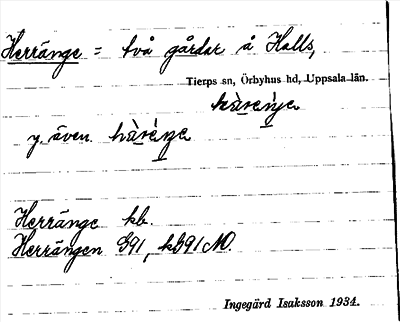 Herränge = två gårdar å Halls,
Tierps sn, Örbyhus hd, Uppsala län.
hä̀rènjə
y. även. hä̀rènjə
Herränge kb.
Herrängen S91, kS91 MO.
Ingegärd Isaksson 1934.